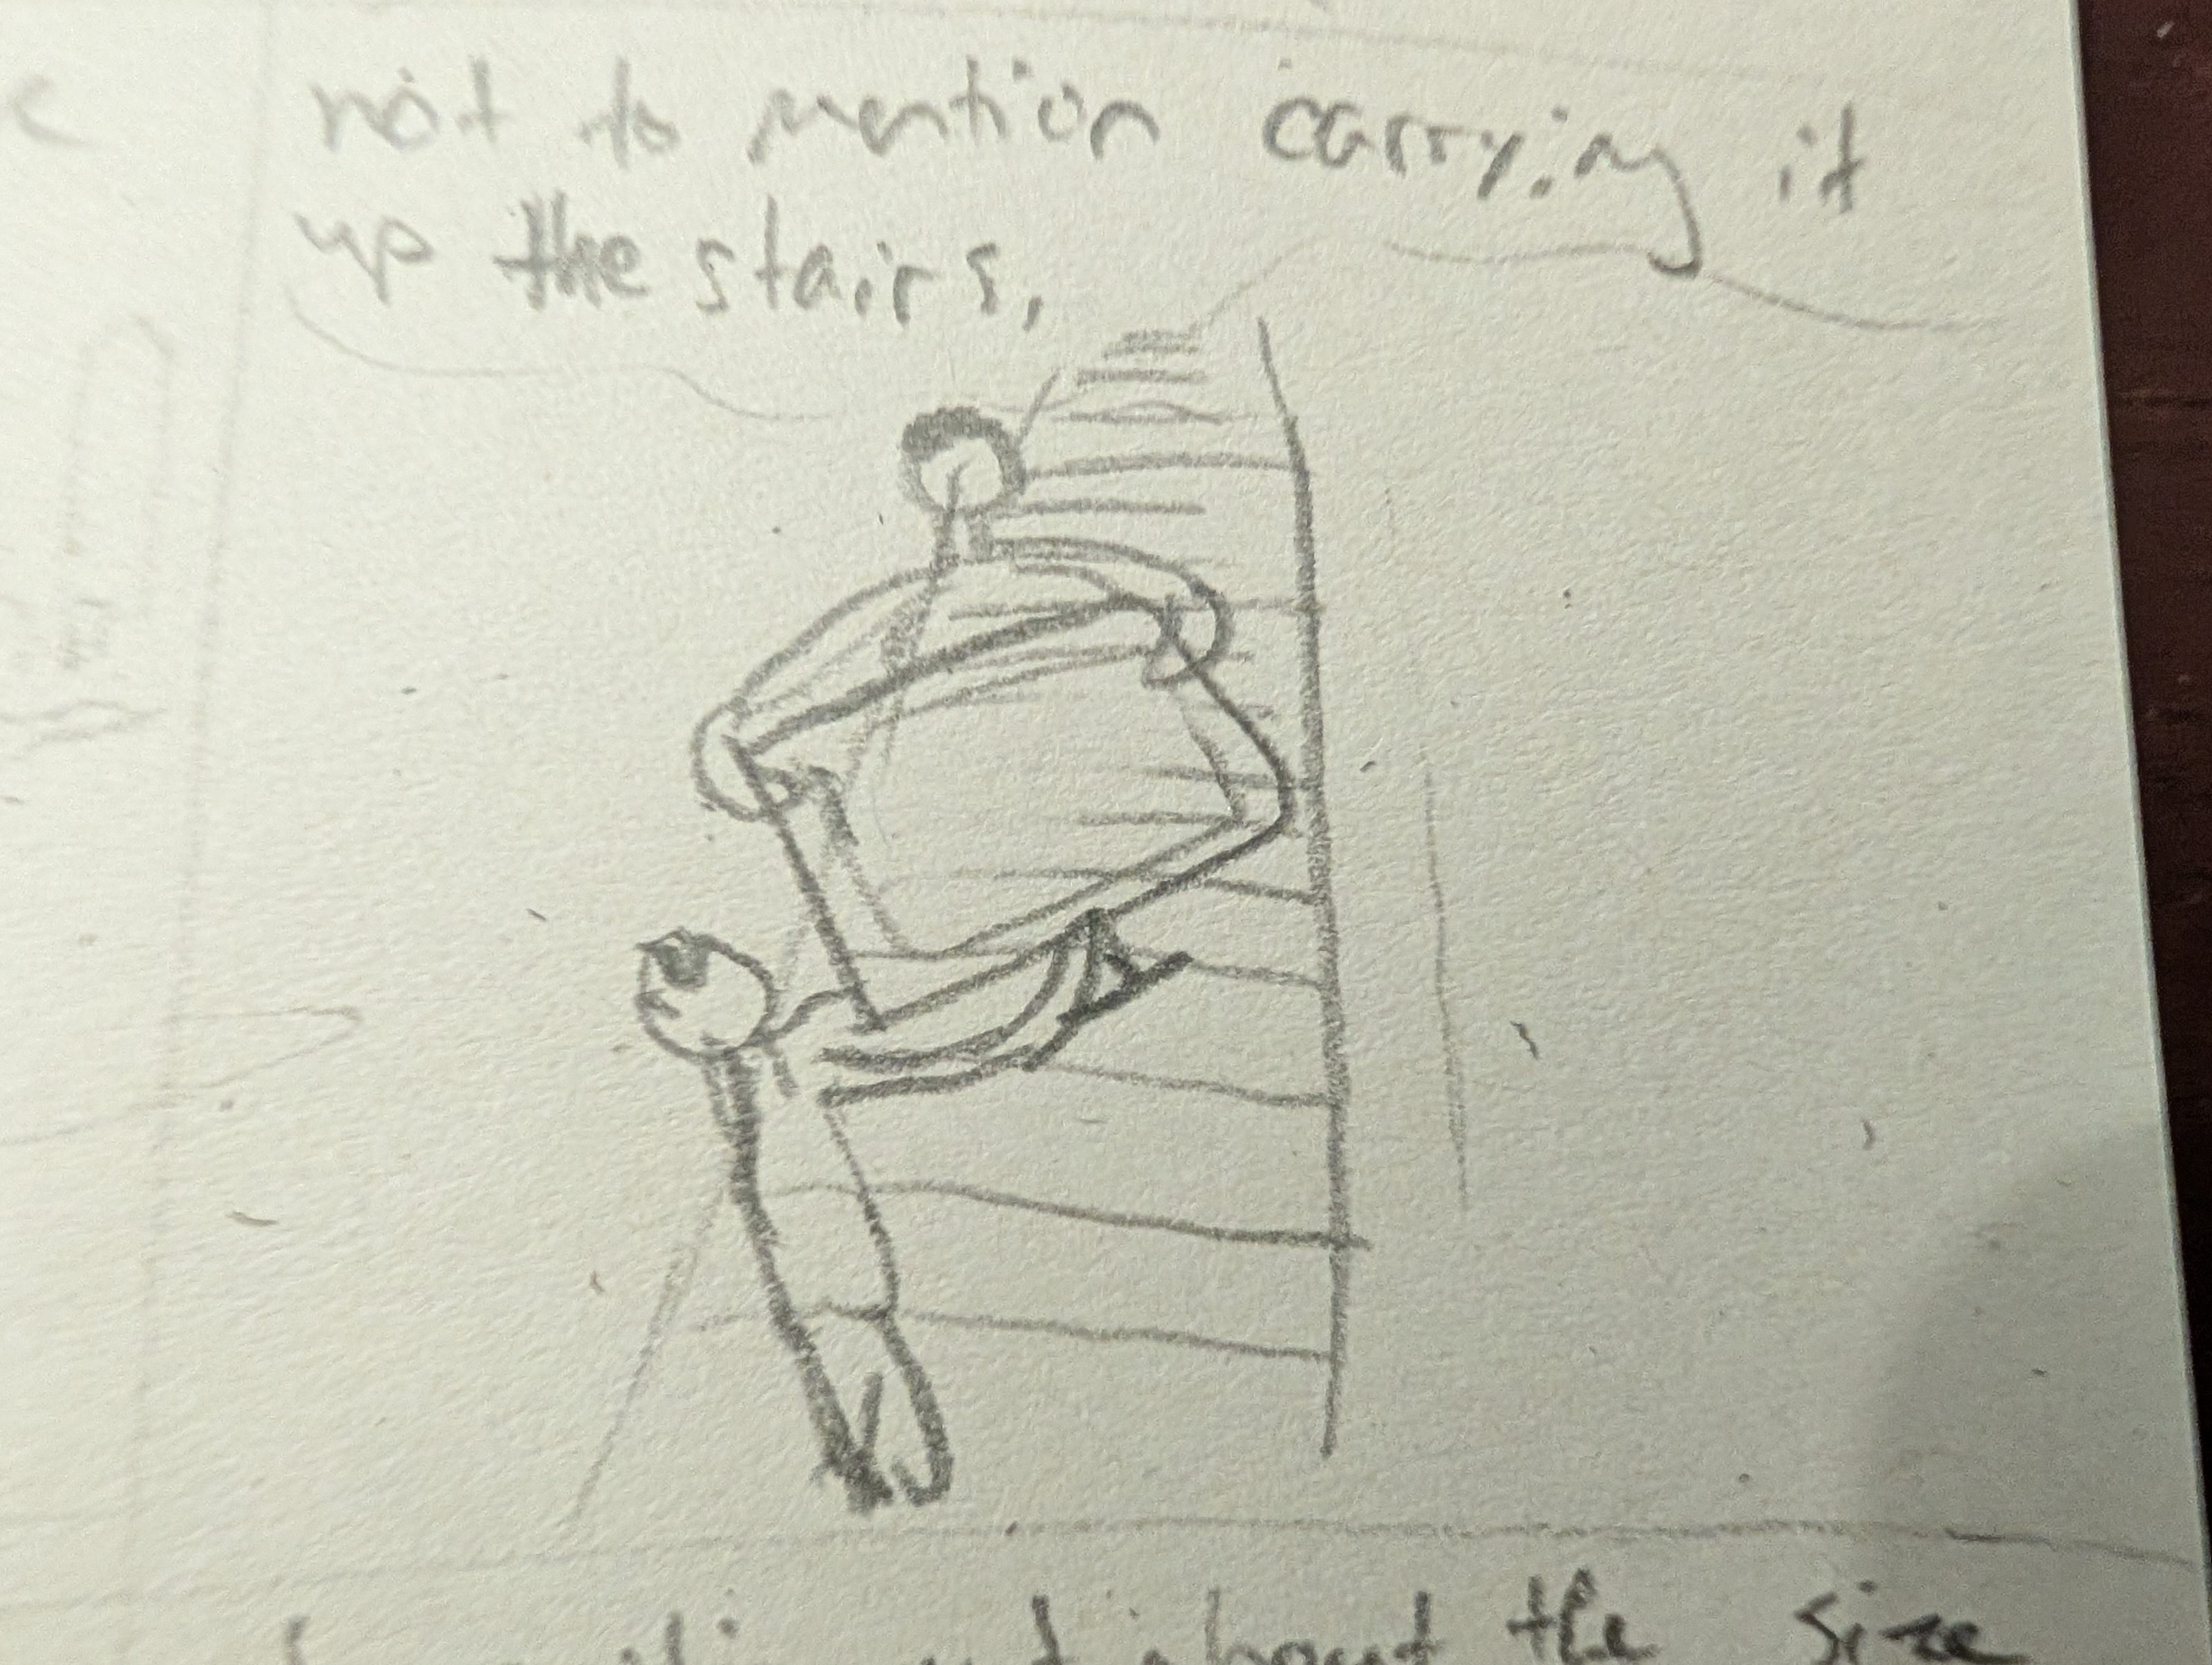 not to mention carrying it
up the stairs,
about the size